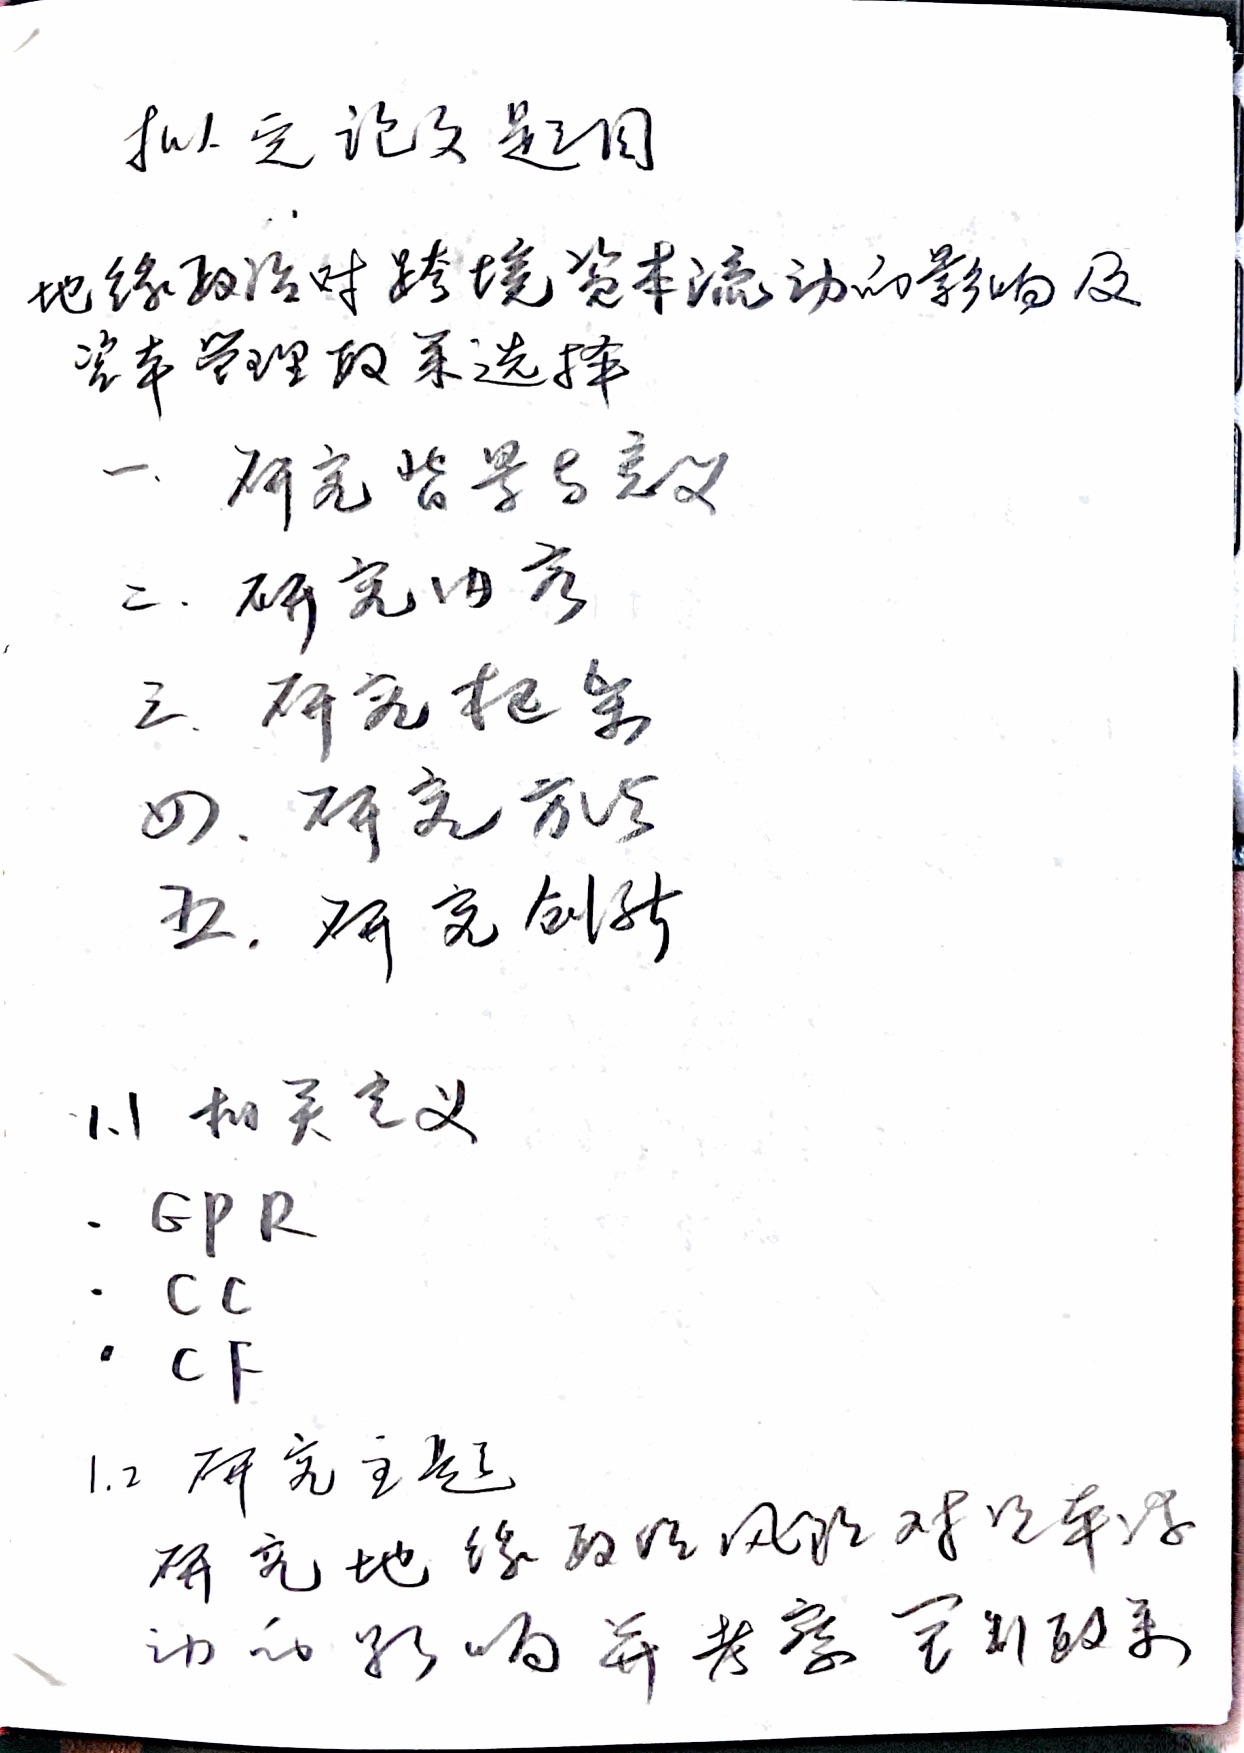 拟定论文题目
地缘政治对跨境资本流动的影响及
资本管理政策选择
一、研究背景与意义
二、研究内容
三、研究框架
四、研究方法
五、研究创新
1.1 相关定义
· GPR
· CC
· CF
1.2 研究主题
研究地缘政治风险对资本流
动的影响并考察管制政策